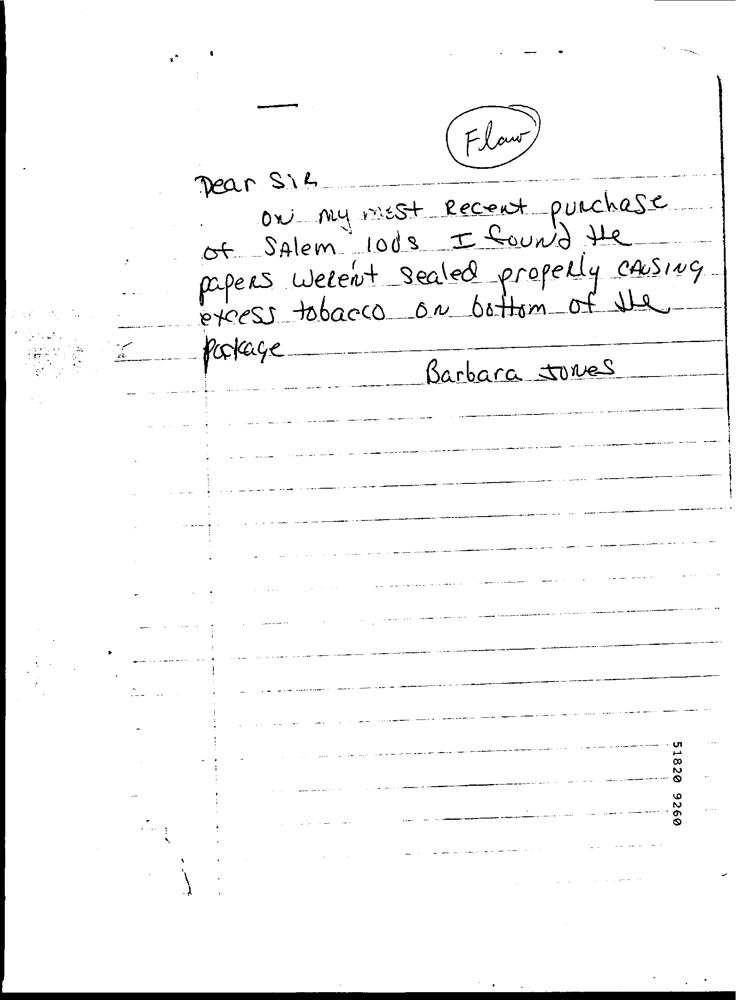 Flaw
Dear Sir
on my most Recent purchase
of SAlem 100s I found the
papers weren't sealed properly CAUSING
excess tobacco on bottom of the
package
Barbara Jones
51820 9260